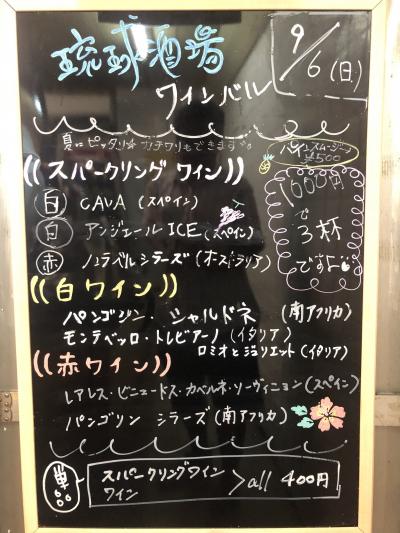 琉球酒場
9/6(日)
ワインバル
夏にピッタリ☆ カチワリもできます
パインスムージー
¥500
((スパークリング ワイン))
1000円
で
3杯
です
白 CAVA (スペイン)
白 アンジュールICE (スペイン)
赤 ノヴェルシラーズ (オーストラリア)
((白ワイン))
パンゴリン・シャルドネ (南アフリカ)
モンテベッロ・トレビアーノ (イタリア)
ロミオとジュリエット (イタリア)
((赤ワイン))
レアレス・ビニュードス・カベルネ・ソーヴィニョン (スペイン)
パンゴリン シラーズ (南アフリカ)
単
スパークリングワイン
ワイン
>all 400円